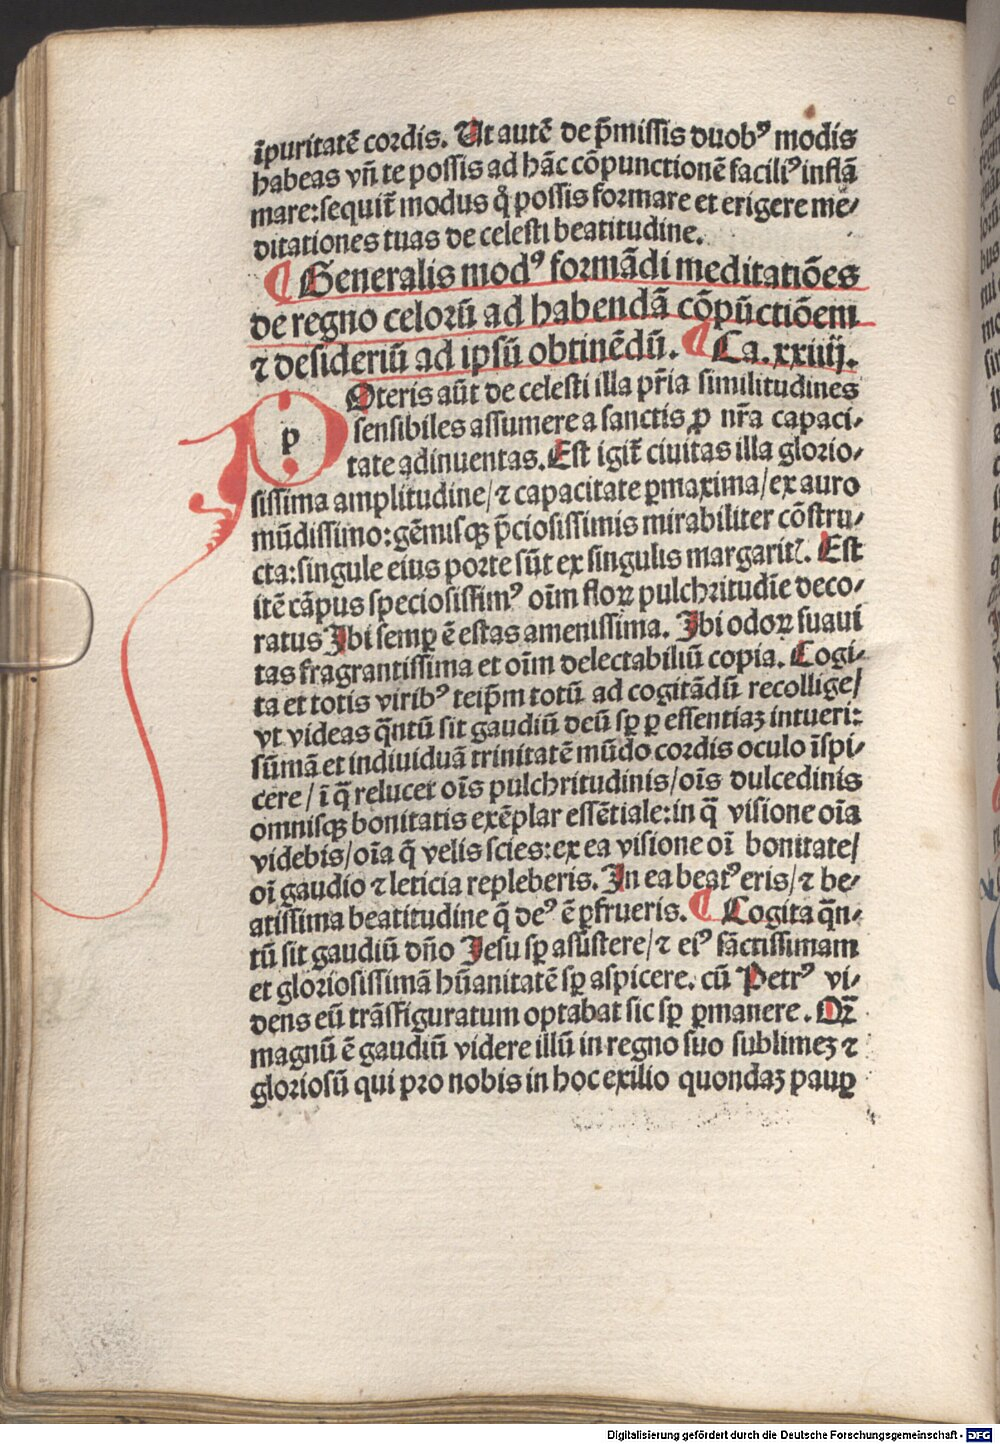 īpuritatē cordis. Ut autē de p̄missis duobꝰ modis
habeas vn̄ te possis ad hāc cōpunctionē faciliꝰ inflā
mare: sequit̄ modus q̊ possis formare et erigere me-
ditationes tuas de celesti beatitudine.
¶ Generalis modꝰ formādi meditatiōes
de regno celorū ad habendā cōpūctiōem
⁊ desideriū ad ipsū obtinēdū. ¶ Ca. xxiiij.
p Oteris aūt de celesti illa pr̄ia similitudines
sensibiles assumere a sanctis ꝓ nr̄a capaci-
tate adinuentas. Est igit̄ ciuitas illa glorio-
sissima amplitudine/ ⁊ capacitate ꝑmaxima/ ex auro
mūdissimo: gēmisqꝫ p̄ciosissimis mirabiliter cōstru-
cta: singule eius porte sūt ex singulis margarit̄. Est
itē cāpus speciosissimꝰ oīm floꝝ pulchritudīe deco-
ratus Ibi semꝑ ē estas amenissima. Ibi odoꝝ suaui
tas fragrantissima et oīm delectabiliū copia. Cogi-
ta et totis viribꝰ teip̄m totū ad cogitādū recollige/
vt videas q̄ntū sit gaudiū deū sꝑ ꝑ essentiaꝫ intueri:
sūmā et indiuiduā trinitatē mūdo cordis oculo īspi-
cere/ ī q̄ relucet oīs pulchritudinis/ oīs dulcedinis
omnisqꝫ bonitatis exēplar essētiale: in q̄ visione oīa
videbis/ oīa q̄ velis scies: ex ea visione oī bonitate/
oī gaudio ⁊ leticia repleberis. In ea beatꝰ eris/ ⁊ be-
atissima beatitudine q̄ deꝰ ē ꝑfrueris. ¶ Cogita q̄n-
tū sit gaudiū dn̄o Jesu sꝑ assistere/ ⁊ eiꝰ sāctissimam
et gloriosissimā hūanitatē sꝑ aspicere. cū Petrꝰ vi-
dens eū trāsfiguratum optabat sic sꝑ ꝑmanere. Oꝫ
magnū ē gaudiū videre illū in regno suo sublimeꝫ ⁊
gloriosū qui pro nobis in hoc exilio quondaꝫ pauꝑ
Digitalisierung gefördert durch die Deutsche Forschungsgemeinschaft - DFG